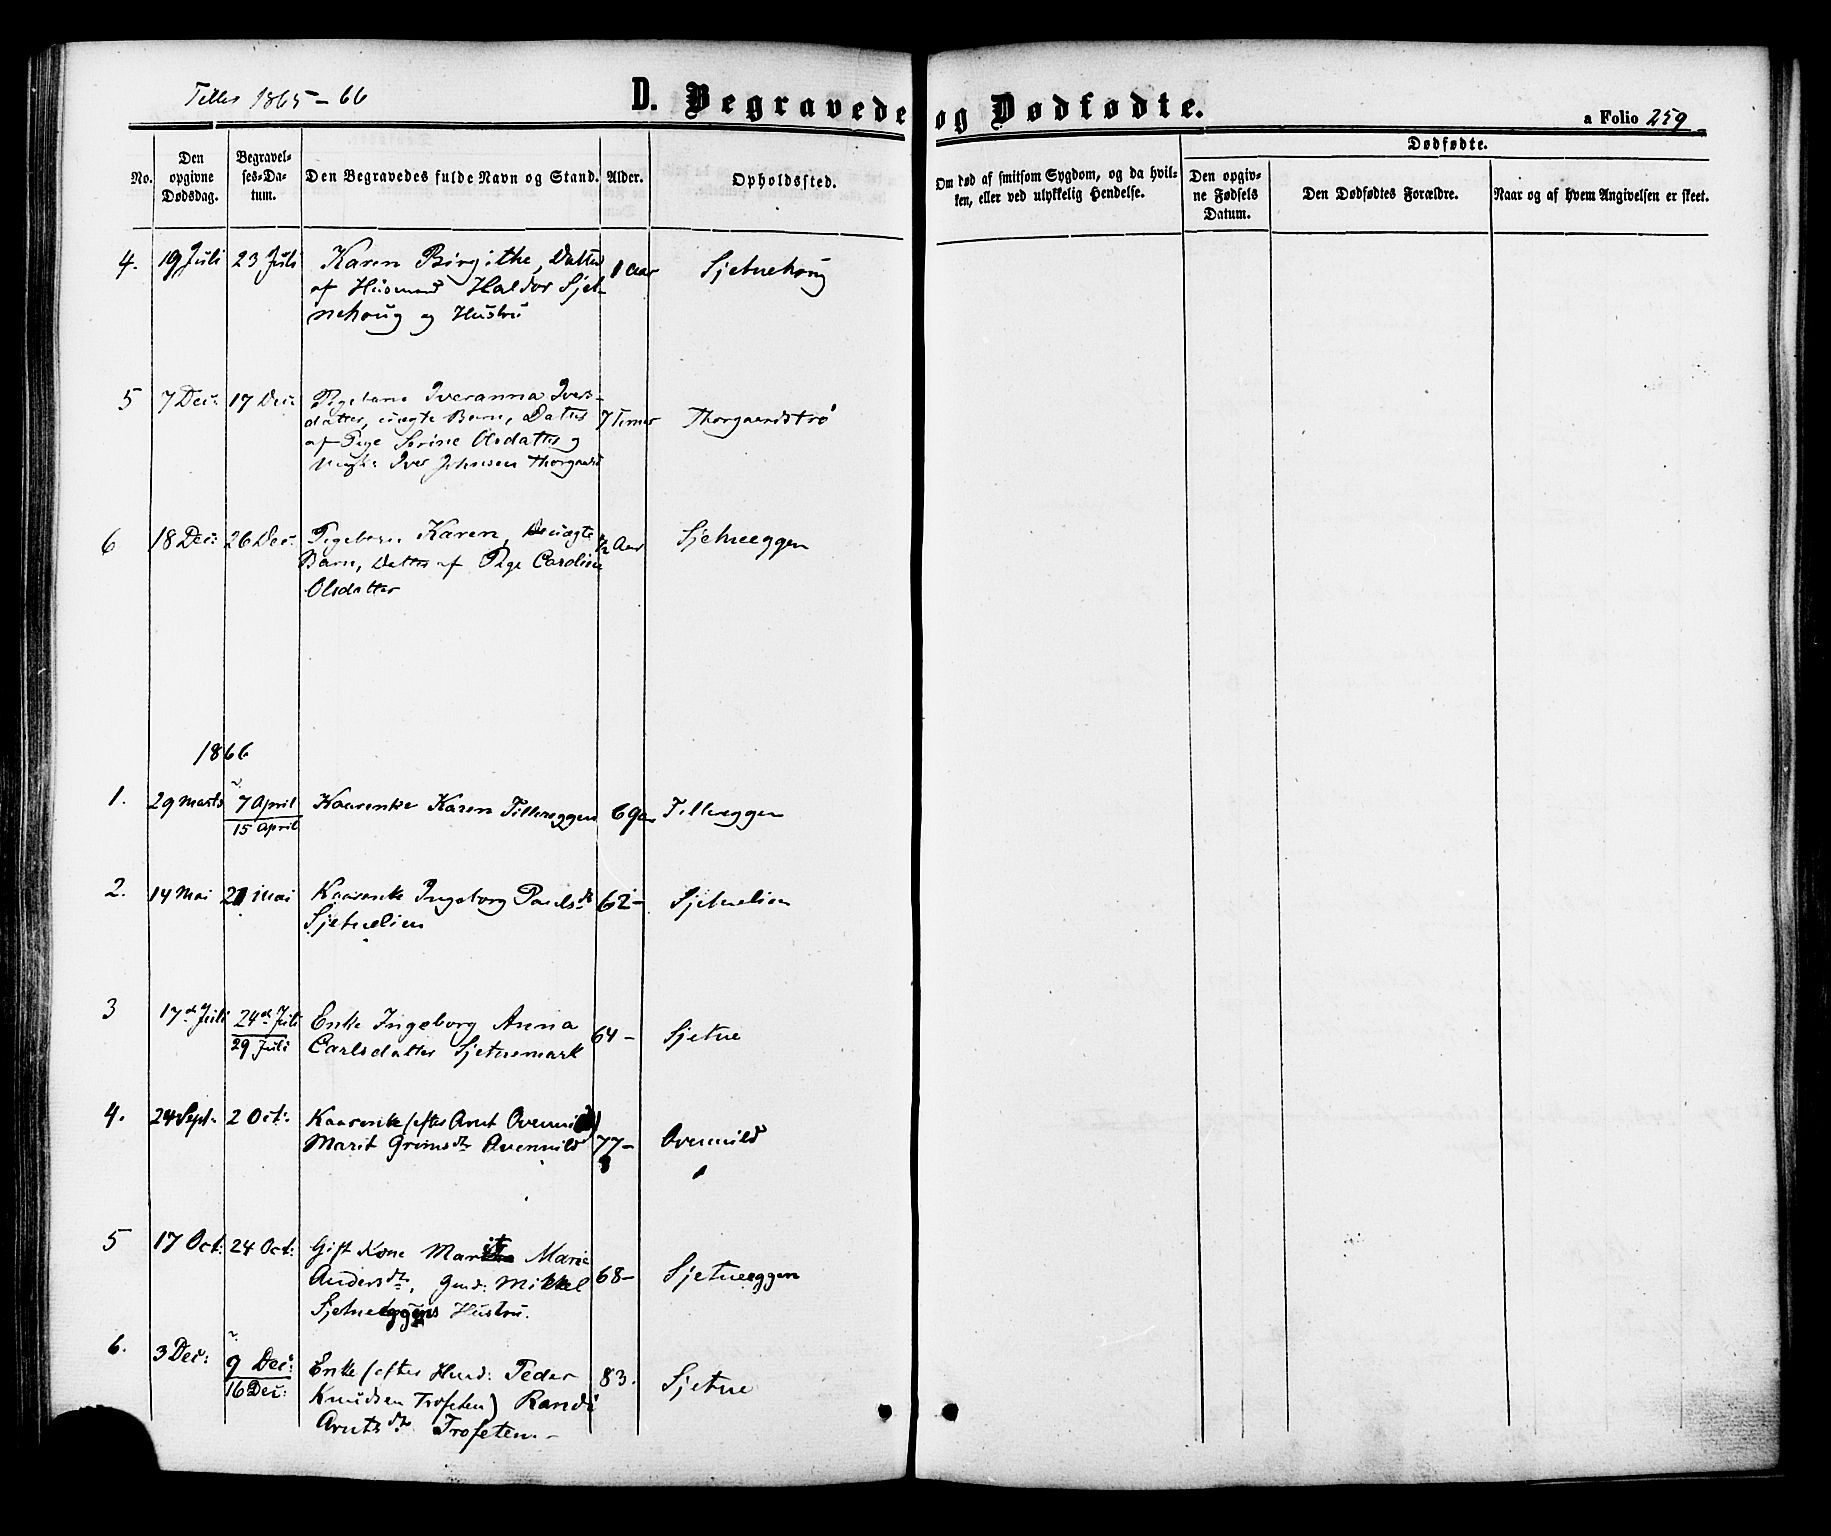 Tiller 1865-66
D. Begravede og Dødfødte.
a Folio 259
No.
Den opgivne Dødsdag.
Begravelses-Datum.
Den Begravedes fulde Navn og Stand.
Alder.
Opholdssted.
Om død af smitsom Sygdom, og da hvilken, eller ved ulykkelig Hendelse.
Dødfødte.
Den opgivne Fødsels Datum.
Den Dødfødtes Forældre.
Naar og af hvem Angivelsen er skeet.
4. 19 Juli 23 Juli Karen Birgithe, Datter 1 Aar Sjetnehoug
af Husmand Haldor Sjet-
nehoug og Hustru
5 7 Dec: 17 Dec: Pigebarn Iveranna Ivers- 7 Timer Thorgaardstrø
datter, uægte Barn, Datter
af Pige Serine Olsdatter og
Ungk: Iver Johnsen Thorgaard
6 18 Dec: 26 Dec: Pigebarn Karen, uægte 1/2 Aar Sjetneeggen
Barn, Datter af Pige Caroline
Olsdatter
1866
1. 29 Marts 7 April Kaarenke Karen Tillereggen 69 Tillereggen
15 April
2. 14 Mai 21 Mai Kaarenke Ingeborg Pauls dr 62- Sjetnelien
Sjetnelien
3 17de Juli 24de Juli Enke Ingeborg Anna 64- Sjetne
29 Juli Carlsdatter Sjetnemark
4. 24 Sept. 2 Oct: Kaarenke (efter Arnt Overmild) 77- Overmild
Marit Grims dr Overmild
5 17 Oct: 24 Oct: Gift Kone Marit Marie 68- Sjetneeggen
Anders dr, Gmd: Mikkel
Sjetneeggens Hustru.
6. 3 Dec: 9 Dec: Enke (efter Husd: Peder 83. Sjetne
16 Dec: Knudsen Trofeten) Randi
Arnts dr Trofeten.-